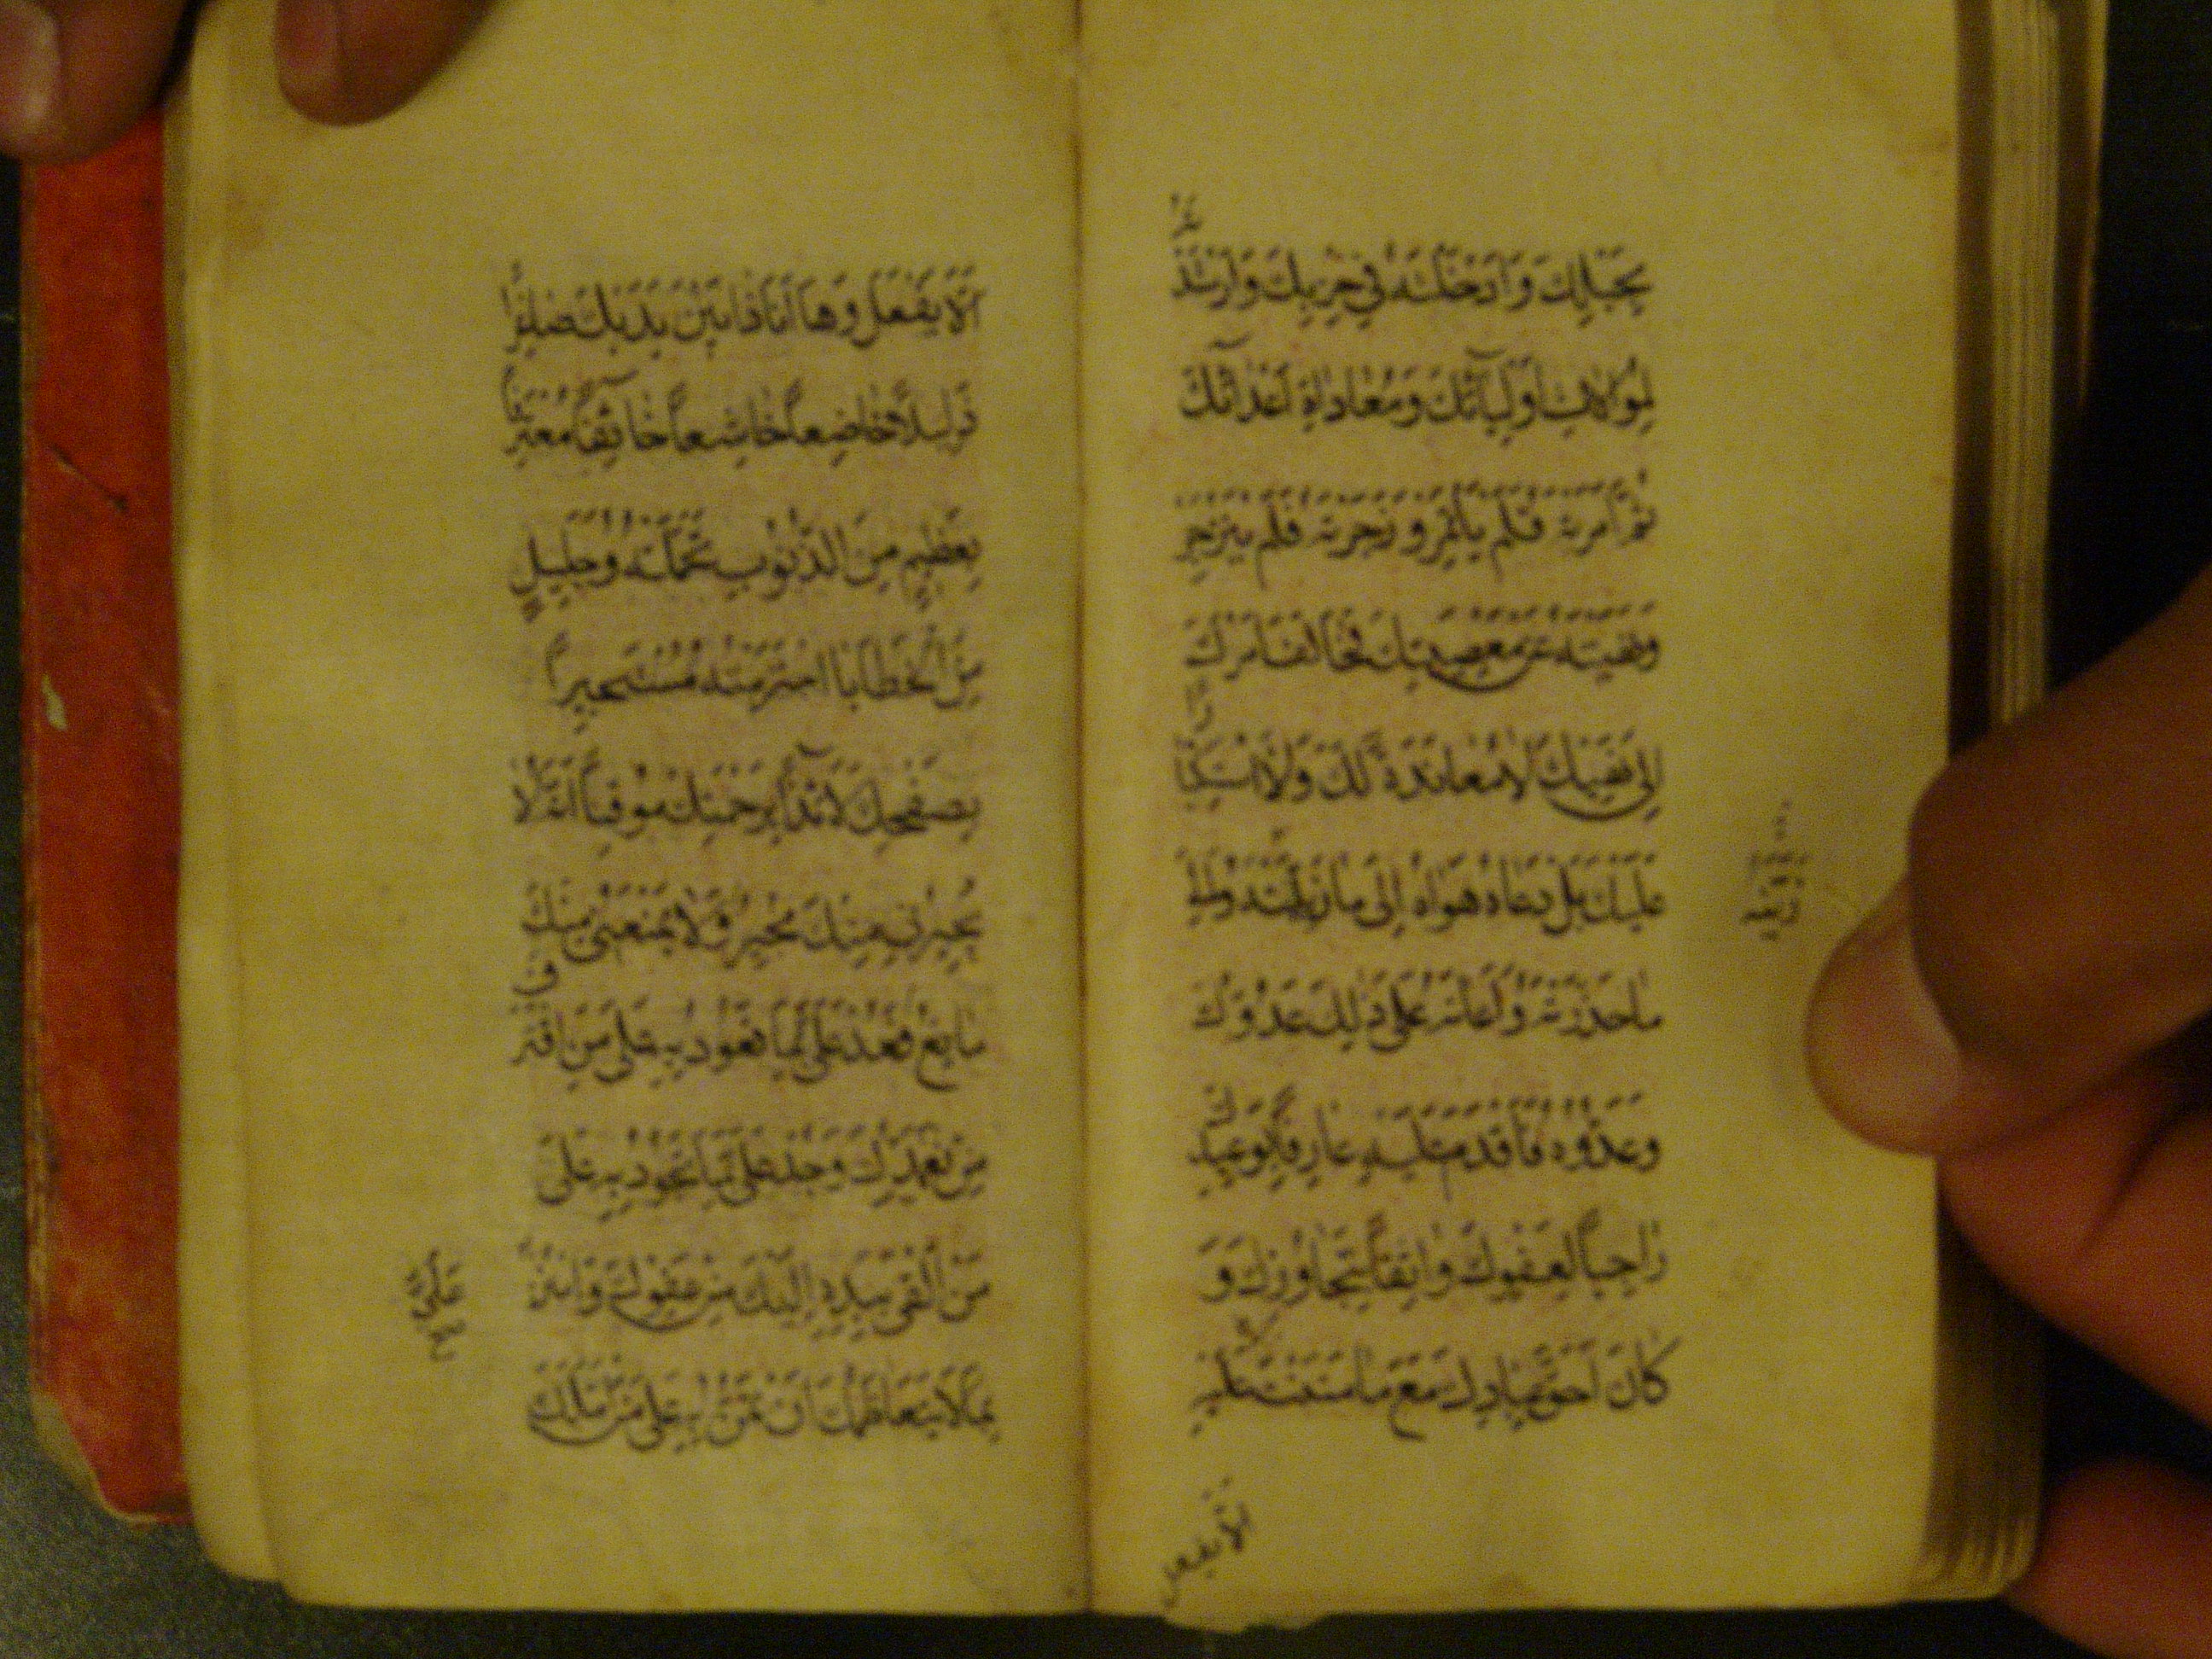 بِحَبْلِكَ وَاَدْخَلْتَهُ في حِزْبِكَ وَاَرْشَدْ
تَهُ
لِمُوالاةِ اَوْلِيآئِكَ وَمُعاداةِ اَعْدآئِكَ
ثُمَّ اَمَرْتَهُ فَلَمْ يَأْتَمِرْ وَزَجَرْتَهُ فَلَمْ يَنْزَجِرْ
وَنَهَيْتَهُ عَنْ مَعْصِيَتِكَ فَخالَفَ اَمْرَكَ
اِلى نَهْيِكَ لا مُعانَدَةً لَكَ وَلاَ اسْتِكْبا
رًا
عَلَيْكَ بَلْ دَعاهُ هَواهُ اِلى ما زَيَّلْتَهُ وَاِلى
ما حَذَّرْتَهُ وَاَعانَهُ عَلى ذلِكَ عَدُوُّكَ
وَعَدُوُّهُ فَاَقْدَمَ عَلَيْهِ عارِفًا بِوَعيدِ
كَ
راجِياً لِعَفْوِكَ واثِقاً بِتَجاوُزِكَ وَ
كانَ اَحَقَّ عِبادِكَ مَعَ ما مَنَنْتَ عَلَيْهِ
اَلاّ يَفْعَلَ
اَلاّ يَفْعَلَ وَها اَنَا ذا بَيْنَ يَدَيْكَ صاغِرًا
ذَليلاً خاضِعاً خاشِعاً خآئِفاً مُعْتَرِفاً
بِعَظيمٍ مِنَ الذُّنُوبِ تَحَمَّلْتُهُ وَجَليلٍ
مِنَ الْخَطايَا اجْتَرَمْتُهُ مُسْتَجيراً
بِصَفْحِكَ لآئِذاً بِرَحْمَتِكَ مُوقِناً اَنَّهُ لا
يُجيرُني مِنْكَ مُجيرٌ وَلا يَمْنَعُني مِنْكَ
مانِعٌ فَعُدْ عَلَيَّ بِما تَعُودُ بِهِ عَلى مَنِ اقْتَرَ
فَ
مِنْ تَغَمُّدِكَ وَجُدْ عَلَيَّ بِما تَجُودُ بِهِ عَلى
مَنْ اَلْقى بِيَدِهِ اِلَيْكَ مِنْ عَفْوِكَ وَامْنُنْ
عَلَيَّ
بِما لا يَتَعاظَمُكَ اَنْ تَمُنَّ بِهِ عَلى مَنْ اَمَّلَكَ